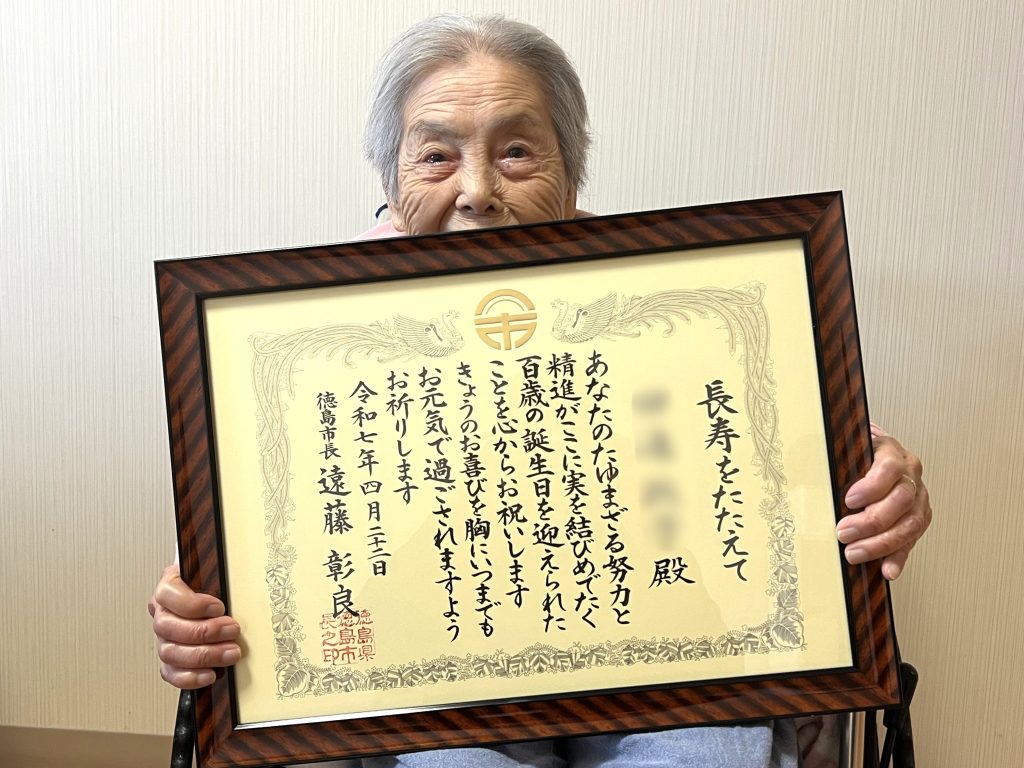 長寿をたたえて
殿
あなたのたゆまざる努力と
精進がここに実を結びめでたく
百歳の誕生日を迎えられた
ことを心からお祝いします
きょうのお喜びを胸にいつまでも
お元気で過ごされますよう
お祈りします
令和七年四月二十二日
徳島市長 遠藤彰良
徳島県
徳島市
長之印